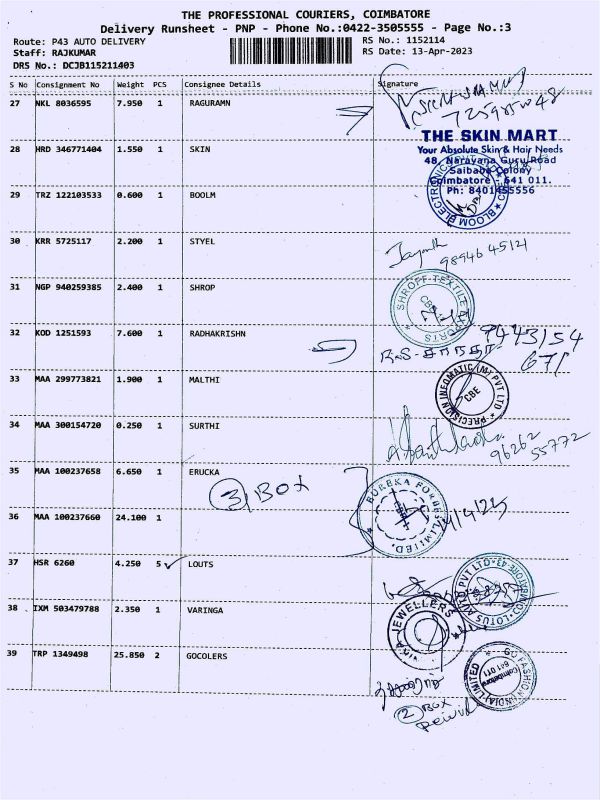 THE PROFESSIONAL COURIERS, COIMBATORE
Delivery Runsheet - PNP - Phone No.:0422-3505555 - Page No.:3
Route: P43 AUTO DELIVERY
RS No.: 1152114
Staff: RAJKUMAR
RS Date: 13-Apr-2023
DRS No.: DCJB115211403
S No Consignment No Weight Pkgs Consignee Details Signature
27 NKL 8036595 7.950 1 RAGURAMN
28 HRD 346771404 1.550 1 SKIN
THE SKIN MART
Your Absolute Skin & Hair Needs
48, Narayana Guru Road
Saibaba Colony
Coimbatore - 641 011.
Ph: 8401455556
29 TRZ 122103533 0.600 1 BOOLM
BLOOM ELECTRONIC
30 KRR 5725117 2.200 1 STYEL
Jayanth
98946 45121
31 NGP 940259385 2.400 1 SHROP
SHROFF TEXTILE EXPORTS
CBE
32 KOD 1251593 7.600 1 RADHAKRISHN
9443154
671
33 MAA 299773821 1.900 1 MALTHI
PRECISION INFOMATIC (M) PVT LTD
CBE
34 MAA 300154720 0.250 1 SURTHI
96262
55772
35 MAA 100237658 6.650 1 ERUCKA
3 BOX
EUREKA FORBES LIMITED.
CBE
36 MAA 100237660 24.100 1
37 HSR 6260 4.250 5 LOUTS
38 IXM 503479788 2.350 1 VARINGA
JEWELLERS
39 TRP 1349498 25.850 2 GOCOLERS
GO FASHION (INDIA) LIMITED
Coimbatore
641 011
2 BOX